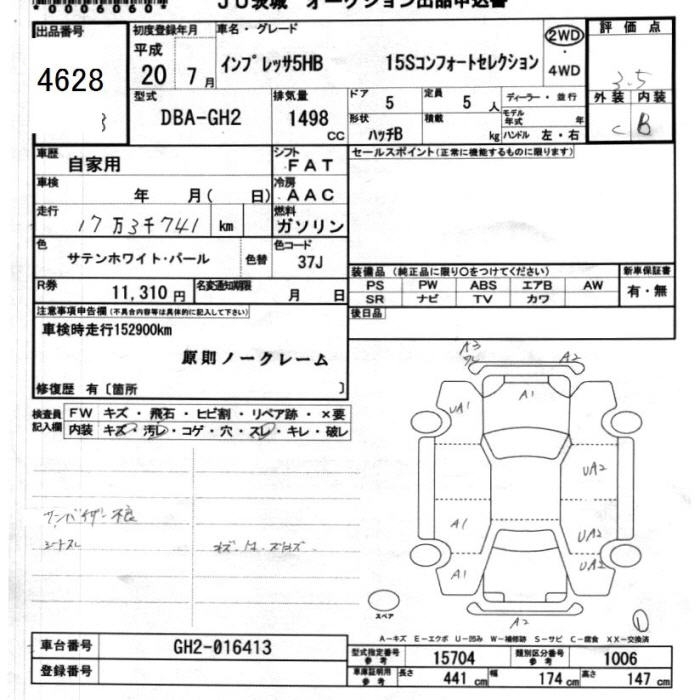 00060600*
JU茨城 オークション出品申込書
出品番号 4628
3
初度登録年月 平成 20 7月
車名・グレード インプレッサ5HB 15Sコンフォートセレクション
2WD・4WD
評価点 3.5
型式 DBA-GH2
排気量 1498 CC
ドア 5
定員 5人
形状 ハッチB
積載 kg
ディーラー・並行
モデル年式 年
ハンドル 左・右
外装 C
内装 B
車歴 自家用
シフト FAT
セールスポイント(正常に機能するものに限ります)
車検 年 月( 日)
冷房 AAC
走行 17万3千741 km
燃料 ガソリン
色 サテンホワイト・パール 色替
色コード 37J
装備品 (純正品に限り○をつけてください)
新車保証書 有・無
PS PW ABS エアB AW
SR ナビ TV カワ
R券 11,310円
名変通知期限 月 日
後日品
注意事項申告欄(不具合内容等は具体的に記入して下さい)
車検時走行152900km
原則ノークレーム
修復歴 有〔箇所 〕
検査員記入欄
FW キズ・飛石・ヒビ割・リペア跡・×要
内装 キズ・汚レ・コゲ・穴・スレ・キレ・破レ
サンバイザー不良
シートスレ
A3
A2
A1
UA1
UA2
A1
UA2
A1
UA2
A2
スペア
1
A-キズ E-エクボ U-凹み W-補修跡 S-サビ C-腐食 XX-交換済
車台番号 GH2-016413
型式指定番号 参考 15704
類別区分番号 参考 1006
登録番号
車庫証明用 参考 長さ 441 cm 幅 174 cm 高さ 147 cm